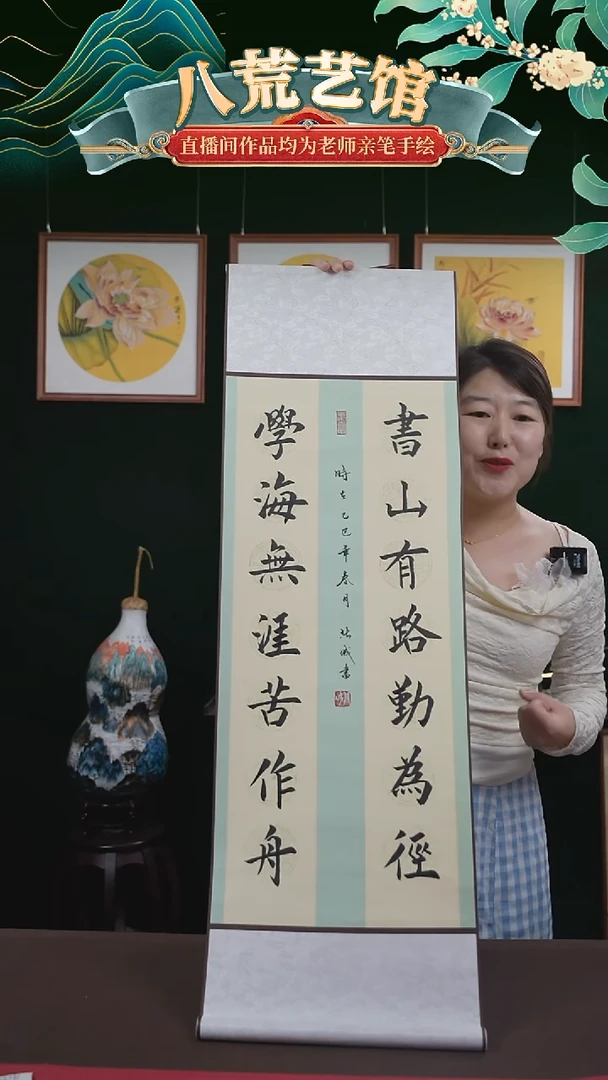 八荒艺馆
直播间作品均为老师亲笔手绘
書山有路勤為徑
學海無涯苦作舟
時在乙巳年春月
書